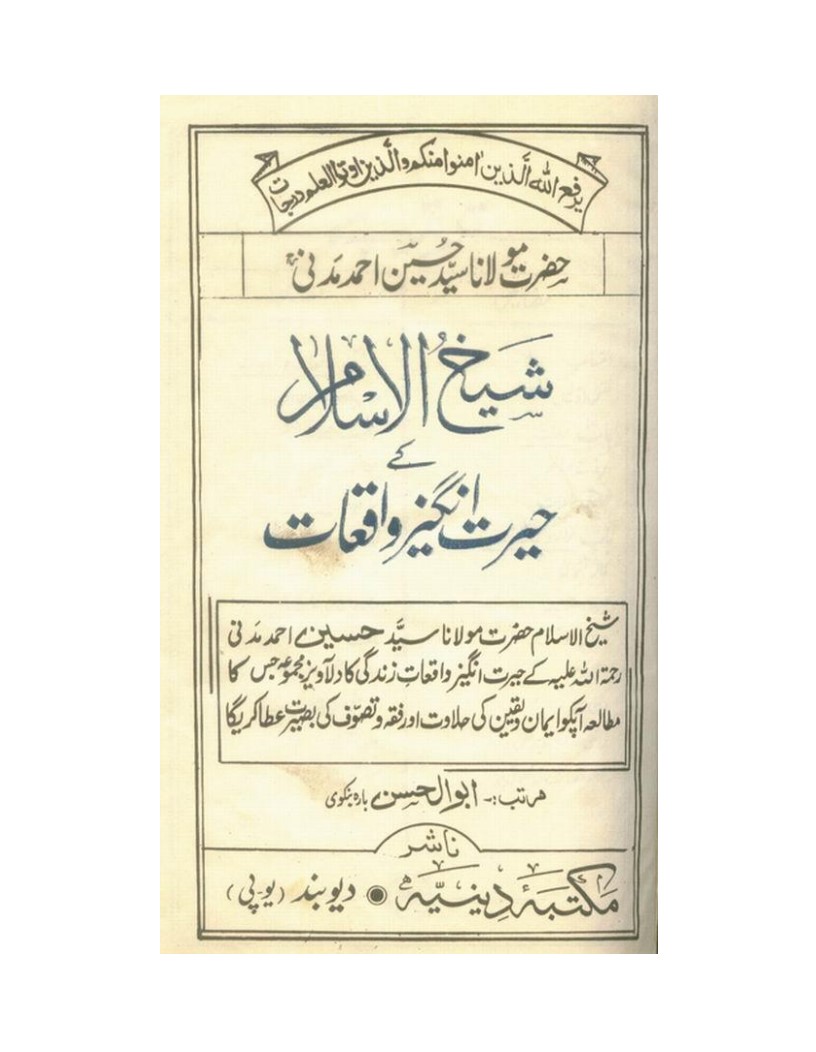 يرفع الله الذين اٰمنوا منكم والذين اوتوا العلم درجات
حضرت مولانا سیّد حسین احمد مَدنیؒ
شیخُ الاسلام
کے
حیرت انگیز واقعات
شیخ الاسلام حضرت مولانا سیَّد حسین احمد مَدنی
رحمۃ اللہ علیہ کے حیرت انگیز واقعاتِ زندگی کا دلآویز مجموعہ جس کا
مطالعہ آپکو ایمان و یقین کی حلاوت اور فقہ و تصوّف کی بصیرت عطا کریگا
مرتب :۔ ابوالحسن بارہ بنکوی
ناشر
مکتبۂ دینیّہ ◉ دیوبند (یو۔پی)